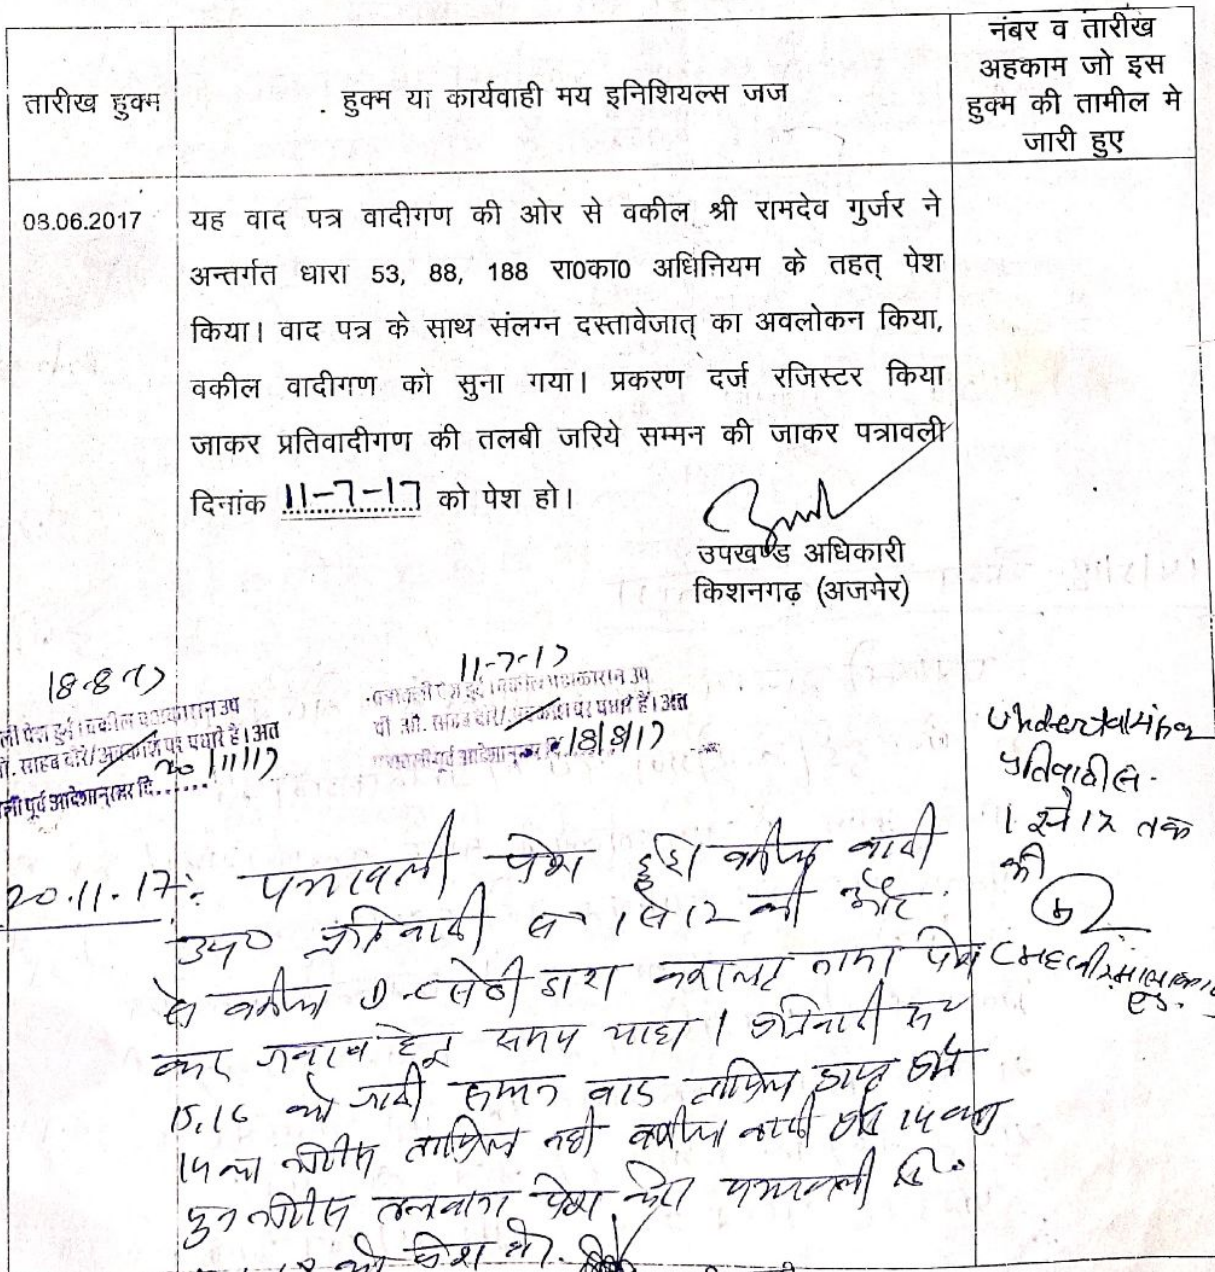 तारीख हुक्म
हुक्म या कार्यवाही मय इनिशियल्स जज
नंबर व तारीख
अहकाम जो इस
हुक्म की तामील मे
जारी हुए
08.06.2017
यह वाद पत्र वादीगण की ओर से वकील श्री रामदेव गुर्जर ने
अन्तर्गत धारा 53, 88, 188 रा0का0 अधिनियम के तहत् पेश
किया। वाद पत्र के साथ संलग्न दस्तावेजात् का अवलोकन किया,
वकील वादीगण को सुना गया। प्रकरण दर्ज रजिस्टर किया
जाकर प्रतिवादीगण की तलबी जरिये सम्मन की जाकर पत्रावली
दिनांक 11-7-17 को पेश हो।
उपखण्ड अधिकारी
किशनगढ़ (अजमेर)
18-8-17
पेश हुई। वकील पक्षकारान उप
साहब दौरे/अवकाश पर पधारे है। अत
20/11/17
पूर्व आदेशानुसार दि.
11-7-17
पत्रावली पेश हुई। वकील पक्षकारान उप
पी. ओ. साहब दौरे/अवकाश पर पधारे है। अत
पत्रावली पूर्व आदेशानुसार दि. 18/8/17
प्रतिवादी स.
1 से 12 तक
की
20.11.17: पत्रावली पेश हुई। वकील वादी
उप0 प्रतिवादी स 1 से 12 की ओर
से वकील D.C सेठी द्वारा वकालत नामा पेश
कर जवाब हेतु समय चाहा। प्रतिवादी
15,16 को जारी सम्मन बाद तामिल प्राप्त
14 का नोटिस तामिल नही वकील वादी 14 का
पुन नोटिस तलबाना पेश करे पत्रावली दि.
को पेश हो.